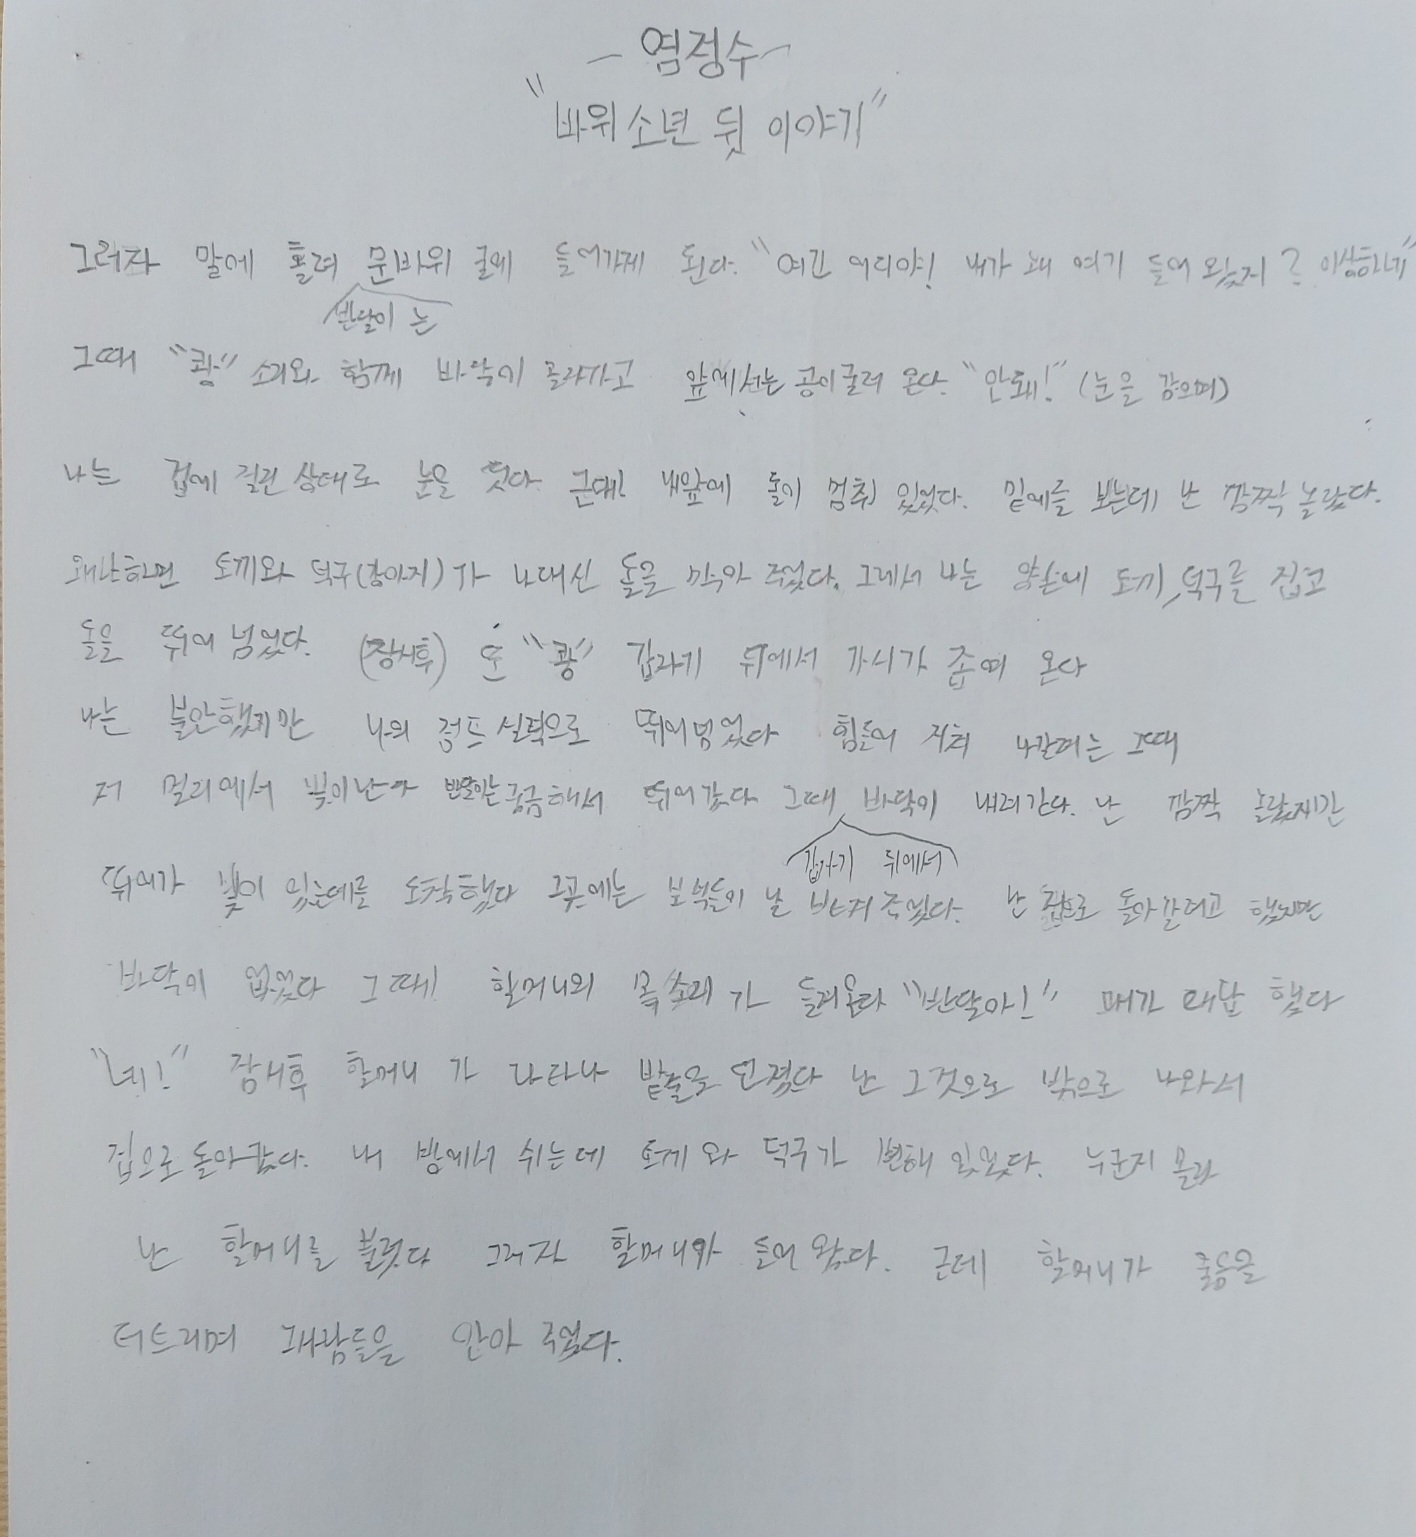 -염정수-
"바위소년 뒷 이야기"
그러자 말에 홀려 문바위 굴에 들어가게 된다. "여긴 어디야! 내가 왜 여기 들어 왔지? 이상하네"
반달이 는
그때 "쾅" 소리와 함께 바닥이 올라가고 앞에서는 공이굴러 온다. "안돼!" (눈을 감으며)
나는 겁에 질린 상태로 눈을 떳다. 근데! 내앞에 돌이 멈춰 있었다. 밑에를 보는데 난 깜짝 놀랐다.
왜냐하면 토끼와 덕구(강아지)가 나대신 돌을 막아 주었다. 그래서 나는 양손에 토끼, 덕구를 집고
돌을 뛰어 넘었다. (잠시후) 또 "쾅" 갑자기 뒤에서 가시가 좁혀 온다
나는 불안했지만 나의 점프 실력으로 뛰어넘었다 힘들어 지쳐 나갈려는 그때
저 멀리에서 빛이난다 반달이는 궁금해서 뛰어갔다 그때 바닥이 내려간다. 난 깜짝 놀랐지만
갑자기 뒤에서
뛰어가 빛이 있는데를 도착했다 그곳에는 보석들이 날 반겨 주었다. 난 집으로 돌아 갈려고 했지만
바닥이 없었다 그 때! 할머니의 목소리가 들려온다 "반달아!" 내가 대답 했다
"네!" 잠시후 할머니 가 나타나 밧줄을 던졌다 난 그것으로 밖으로 나와서
집으로 돌아갔다. 내 방에서 쉬는데 토끼 와 덕구가 변해 있었다. 누군지 몰라
난 할머니를 불렀다 그러자 할머니가 들어 왔다. 근데 할머니가 울음을
터트리며 그사람들을 안아 주었다.